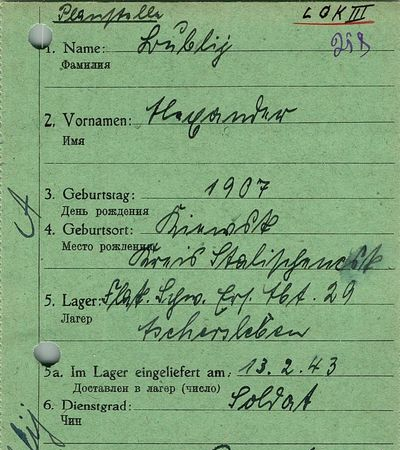 Planstelle
LOK III
258
1. Name: Lublij
Фамилия
2. Vornamen: Alexander
Имя
3. Geburtstag: 1907
День рождения
4. Geburtsort: Kiewsk
Место рождения
Kreis
5. Lager: Flak. Schw. Ers. Abt. 29
Лагер
Aschersleben
5a. Im Lager eingeliefert am: 13.2.43
Доставлен в лагер (число)
6. Dienstgrad: Soldat
Чин